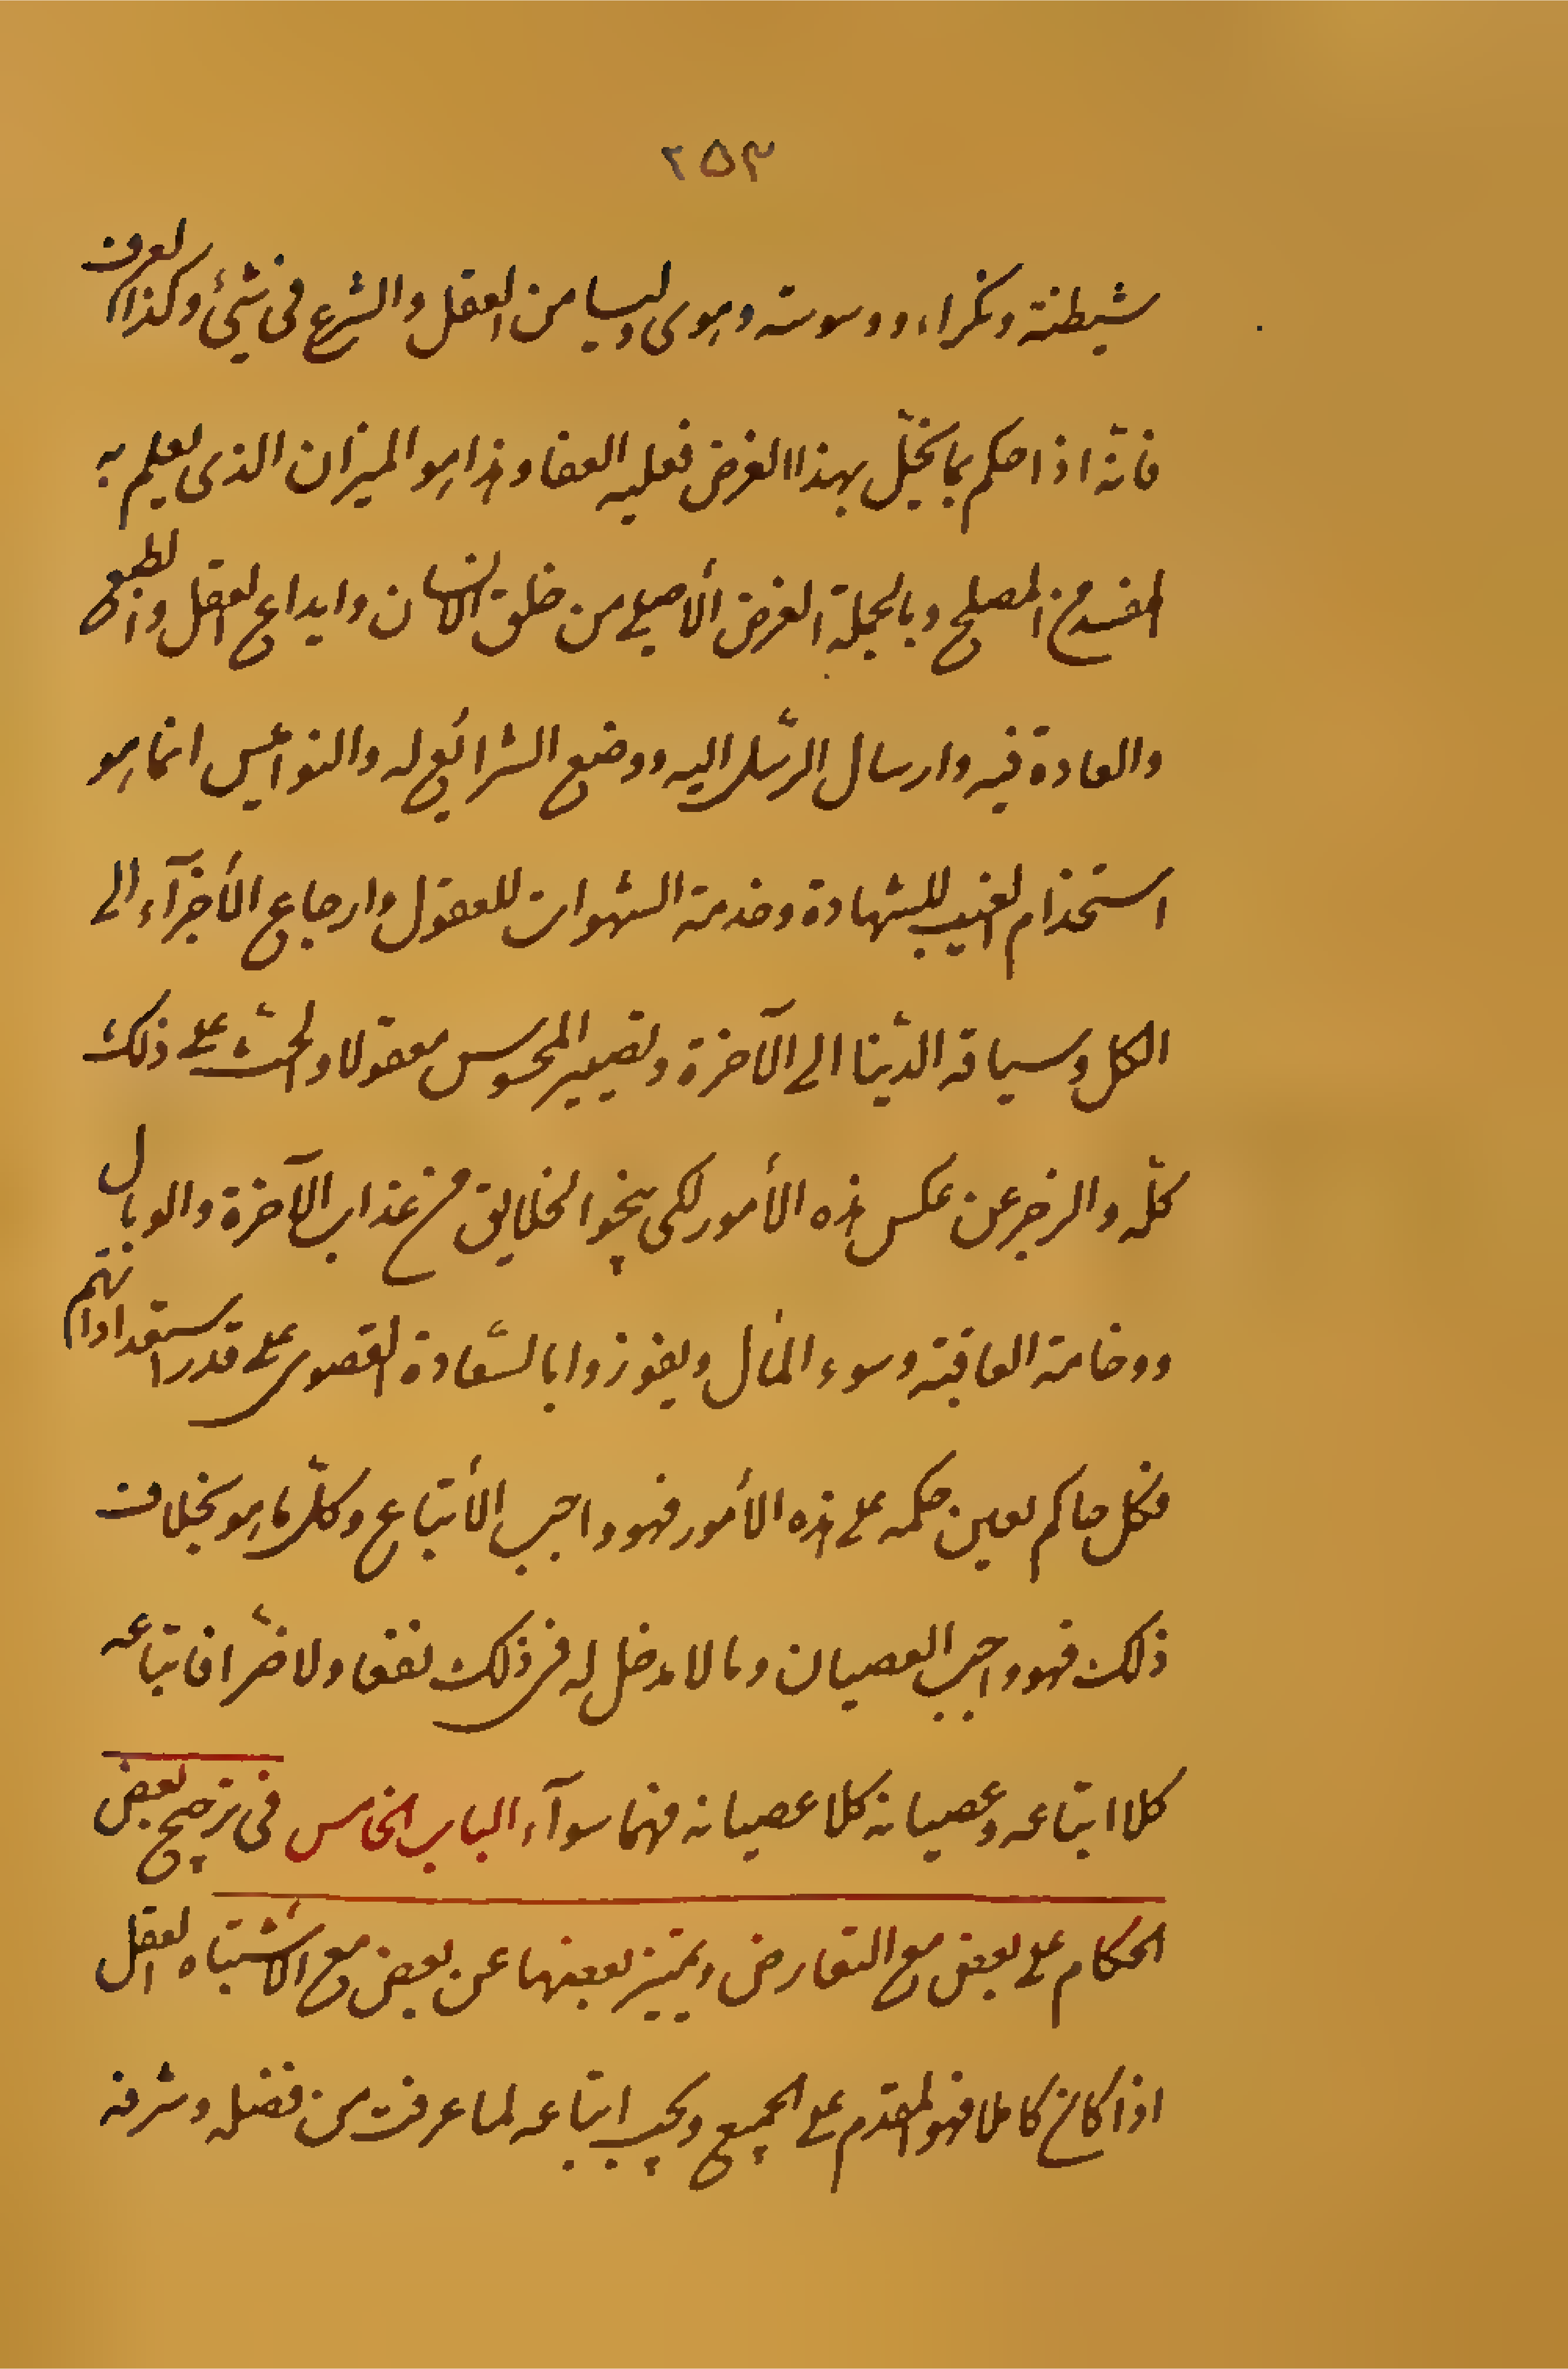 ٢٥٣
شيطنة ونكراء ووسوسة وهوى وليسا من العقل والشرع في شئ وكذا العرف
فانّه اذا حكم بما يخلّ بهذا الغرض فعليه العفا وهذا هو الميزان الذى يعلم به
المفسد من المصلح وبالجملة الغرض الأصلي من خلق الانسان وايداع العقل والطبع
والعادة فيه وارسال الرّسل اليه ووضع الشرائع له والنواميس انما هو
استخذام الغيب للشهادة وخدمة الشهوات للعقول وارجاع الأجزآء الى
الكل وسياقة الدّنيا الى الآخرة وتصيير المحسوس معقولا والحثّ على ذلك
كلّه والزجر عن عكس هذه الأمور لكى ينجوا الخلايق من عذاب الآخرة والوبال
ووخامة العاقبة وسوء المأل ويفوزوا بالسّعادة القصوى على قدر استعداداتهم
فكل حاكم يعين حكمه على هذه الأمور فهو واجب الأتباع وكلّ ما هو بخلاف
ذلك فهو واجب العصيان وما لا مدخل له فى ذلك نفعا ولا ضرّا فاتباعه
كلا اتباعه وعصيانه كلا عصيانه فهما سوآء الباب الخامس في ترجيح بعض
الحكام على بعض مع التعارض وتميّز بعضها عن بعض مع الأشتباه العقل
اذا كان كاملا فهو المقدم على الجميع ويجب اتباعه لما عرفت من فضله وشرفه